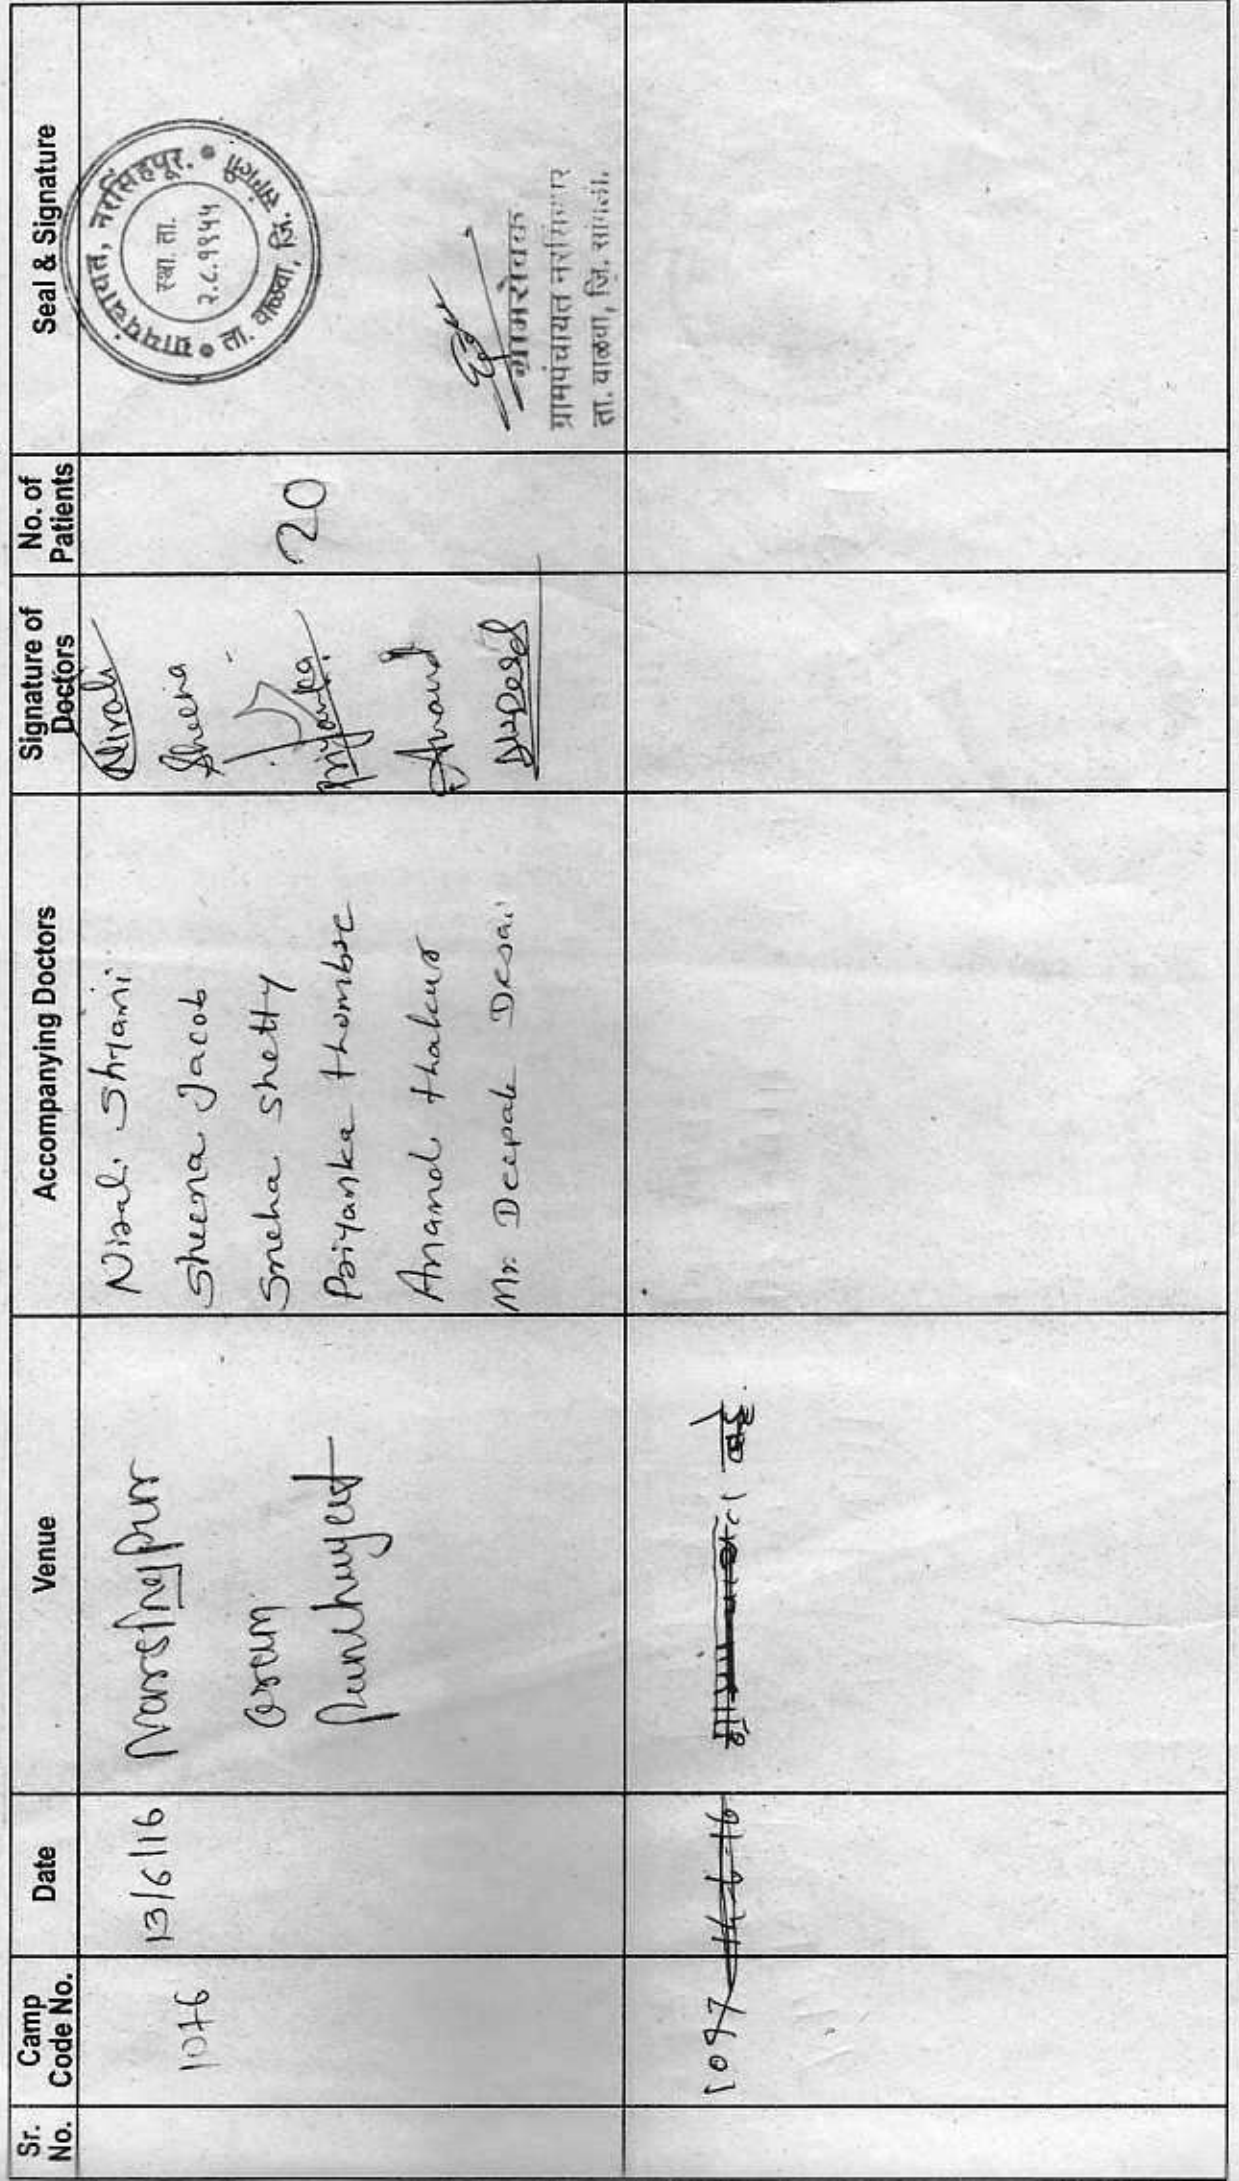 Sr. No.
Camp Code No.
Date
Venue
Accompanying Doctors
Signature of Doctors
No. of Patients
Seal & Signature
1076
13/6/16
Narsihpur
Gram
Punchayet
Nirali Shyani
Sheena Jacob
Sneha Shetty
Priyanka Thombre
Anand Thakur
Mr. Deepak Desai
Nirali
Sheena
Priyanka
Anand
20
ग्रामपंचायत, नरसिंहपूर.
ता. वाळवा, जि. सांगली
स्था. ता.
२.८.१९५५
ग्रामसेवक
ग्रामपंचायत नरसिंहपूर
ता. वाळवा, जि. सांगली.
1097
14-6-16